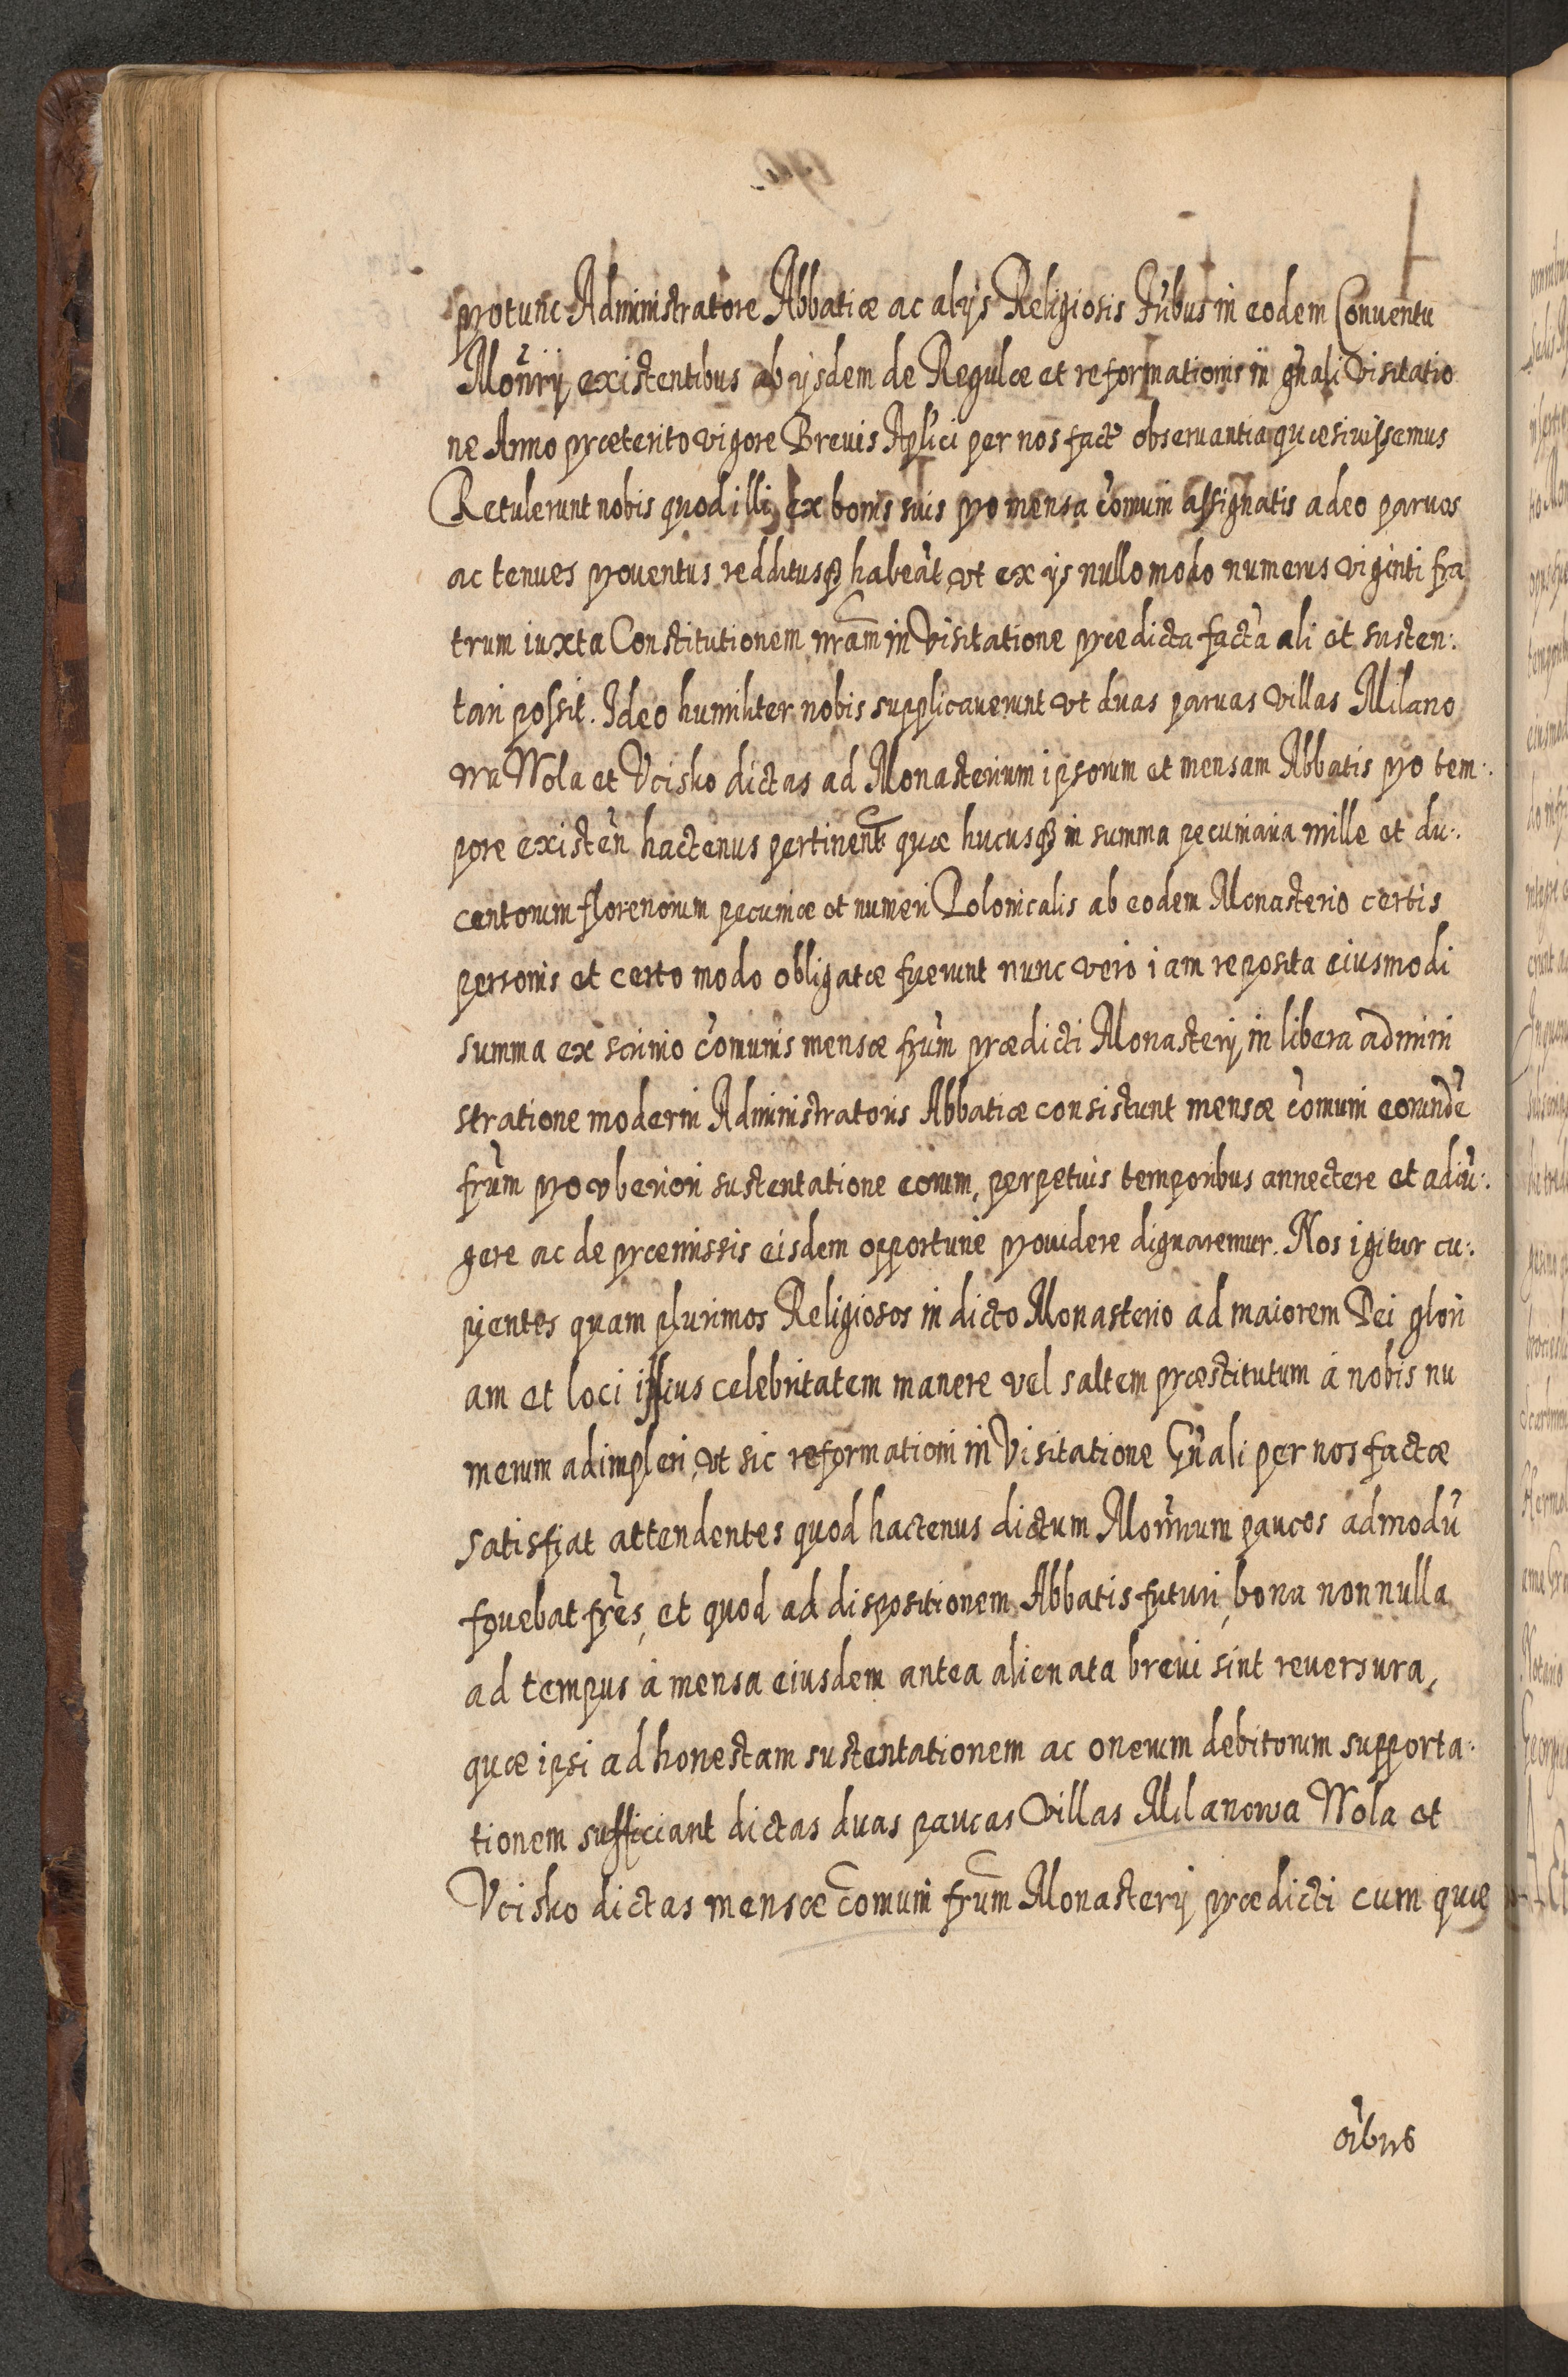 protunc Administratore Abbatiæ ac alijs Religiosis Fribus in eodem Conuentu
Moñrij existentibus ab ijsdem de Regulæ et reformationis in gñali Visitatio
ne Anno præterito vigore Breuis Aplici per nos fact observantia quæsiuissemus
Retulerunt nobis quod illi ex bonis suis pro mensa cõmuni assignatis adeo paruos
ac tenues prouentus redditusqꝫ habeãt vt ex ijs nullo modo numerus viginti fra
trum iuxta Constitutionem nrãm in Visitatione prædicta factã ali et susten:
tari possit. Ideo humiliter nobis supplicauerunt vt duas paruas villas Milano
wa Wola et Vcisko dictas ad Monasterium ipsorum et mensam Abbatis pro tem:
pore existeñ hactenus pertinent quæ hucusqꝫ in summa pecuniaria mille et du:
centorum florenorum pecuniæ et numeri Polonicalis ab eodem Monasterio certis
personis et certo modo obligatæ fuerunt nunc vero iam reposita eiusmodi
summa ex scrinio cõmunis mensæ frũm prædicti Monasterij, in libera admini
stratione moderni Administratoris Abbatiæ consistunt mensæ cõmuni eorundẽ
frũm pro vberiori sustentatione eorum, perpetuis temporibus annectere et adiũ:
gere ac de præmissis eisdem opportune prouidere dignaremur. Nos igitur cu:
pientes quam plurimos Religiosos in dicto Monasterio ad maiorem Dei glori
am et loci illius celebritatem manere vel saltem præstitutum á nobis nu
merum adimpleri, vt sic reformationi in Visitatione Gñali per nos factæ
satisfiat attendentes quod hactenus dictum Moñrium paucos admodũ
fouebat frẽs, et quod ad dispositionem Abbatis futuri, bona nonnulla
ad tempus á mensa eiusdem antea alienata breui sint reuersura,
quæ ipsi ad honestam sustentationem ac onerum debitorum supporta:
tionem sufficiant dictas duas paucas Villas Milanowa Wola et
Vcisko dictas mensæ cõmuni frũm Monasterij prædicti cum quæ
oĩbus